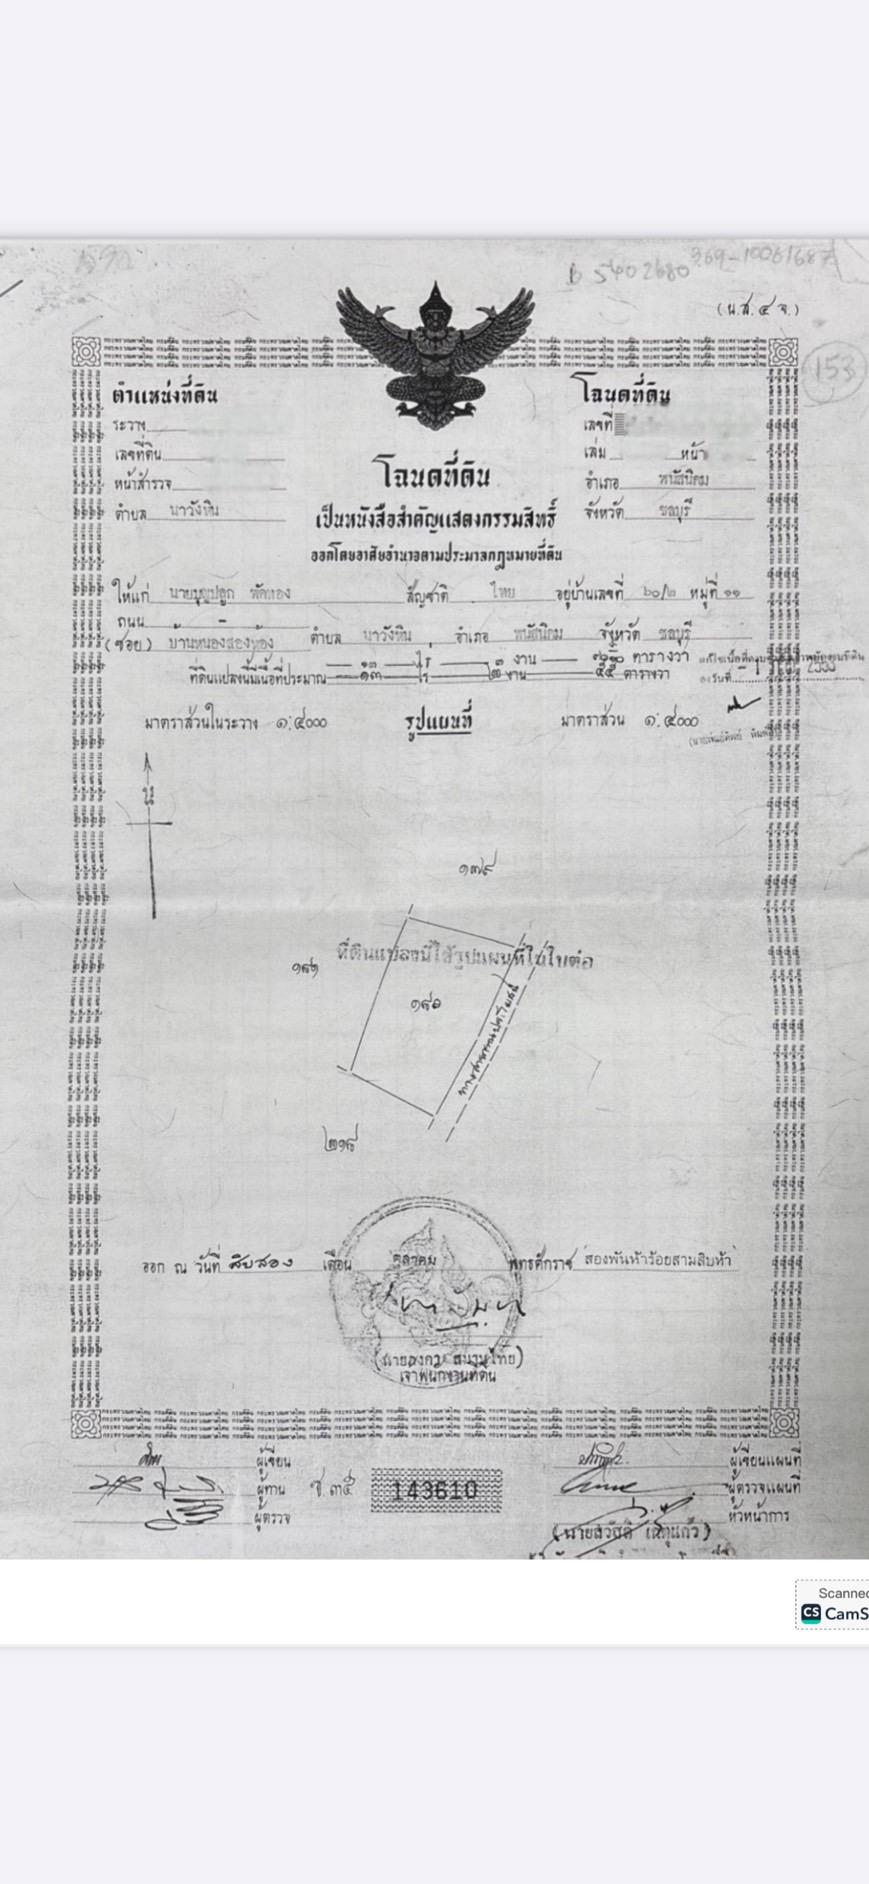 B 5402680
369-10061687
(น.ส.๔ จ.)
153
ตำแหน่งที่ดิน
ระวาง
เลขที่ดิน
หน้าสำรวจ
ตำบล นาวังหิน
โฉนดที่ดิน
เลขที่
เล่ม หน้า
อำเภอ พนัสนิคม
จังหวัด ชลบุรี
โฉนดที่ดิน
เป็นหนังสือสำคัญแสดงกรรมสิทธิ์
ออกโดยอาศัยอำนาจตามประมวลกฎหมายที่ดิน
ให้แก่ นายบุญปลูก พัดทอง สัญชาติ ไทย อยู่บ้านเลขที่ ๖๐/๒ หมู่ที่ ๑๑
ถนน -
(ซอย) บ้านหนองสองห้อง ตำบล นาวังหิน อำเภอ พนัสนิคม จังหวัด ชลบุรี
๑๓ ไร่ ๓ งาน ตารางวา
ที่ดินแปลงนี้มีเนื้อที่ประมาณ ๑๓ ไร่ งาน ๕๕ ตารางวา
มาตราส่วนในระวาง ๑:๔๐๐๐ รูปแผนที่ มาตราส่วน ๑:๔๐๐๐
๑๗๙
ที่ดินแปลงนี้ใช้รูปแผนที่ในใบต่อ
๑๘๑
๑๘๐
๒๑๘
ออก ณ วันที่ สิบสอง เดือน ตุลาคม พุทธศักราช สองพันห้าร้อยสามสิบห้า
เจ้าพนักงานที่ดิน
ผู้เขียน
ผู้ทาน
ผู้ตรวจ
ช.๓๕
143610
ผู้เขียนแผนที่
ผู้ตรวจแผนที่
หัวหน้าการ
Scanned
CS CamS